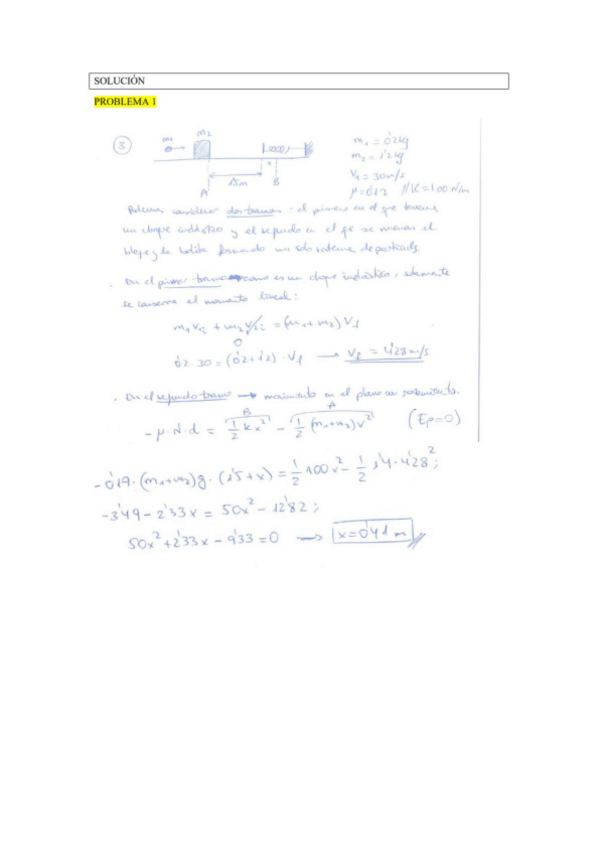 SOLUCIÓN
PROBLEMA 1
3
m₁ m₂
m₁ = 0'2 kg
m₂ = 1'2 kg
V₁ = 30 m/s
μ = 0'17 // K = 100 N/m
x
1'5m
A B
Podemos considerar dos tramos: el primero en el que tenemos
un choque inelástico y el segundo en el que se mueven el
bloque y la bolita formando un solo sistema de partículas.
. En el primer tramo como es un choque inelástico, solamente
se conserva el momento lineal:
m₁V₁ᵢ + m₂V₂ᵢ = (m₁+m₂) V_f
0
0'2 · 30 = (0'2+1'2) · V_f → V_f = 4'28 m/s
. En el segundo tramo → movimiento en el plano con rozamiento.
B A
-μ · N · d = 1/2 kx² - 1/2 (m₁+m₂)v² (Ep=0)
-0'17 · (m₁+m₂)g · (1'5+x) = 1/2 100x² - 1/2 1'4 · 4'28²;
-3'49 - 2'33x = 50x² - 12'82;
50x² + 2'33x - 9'33 = 0 → x = 0'41 m